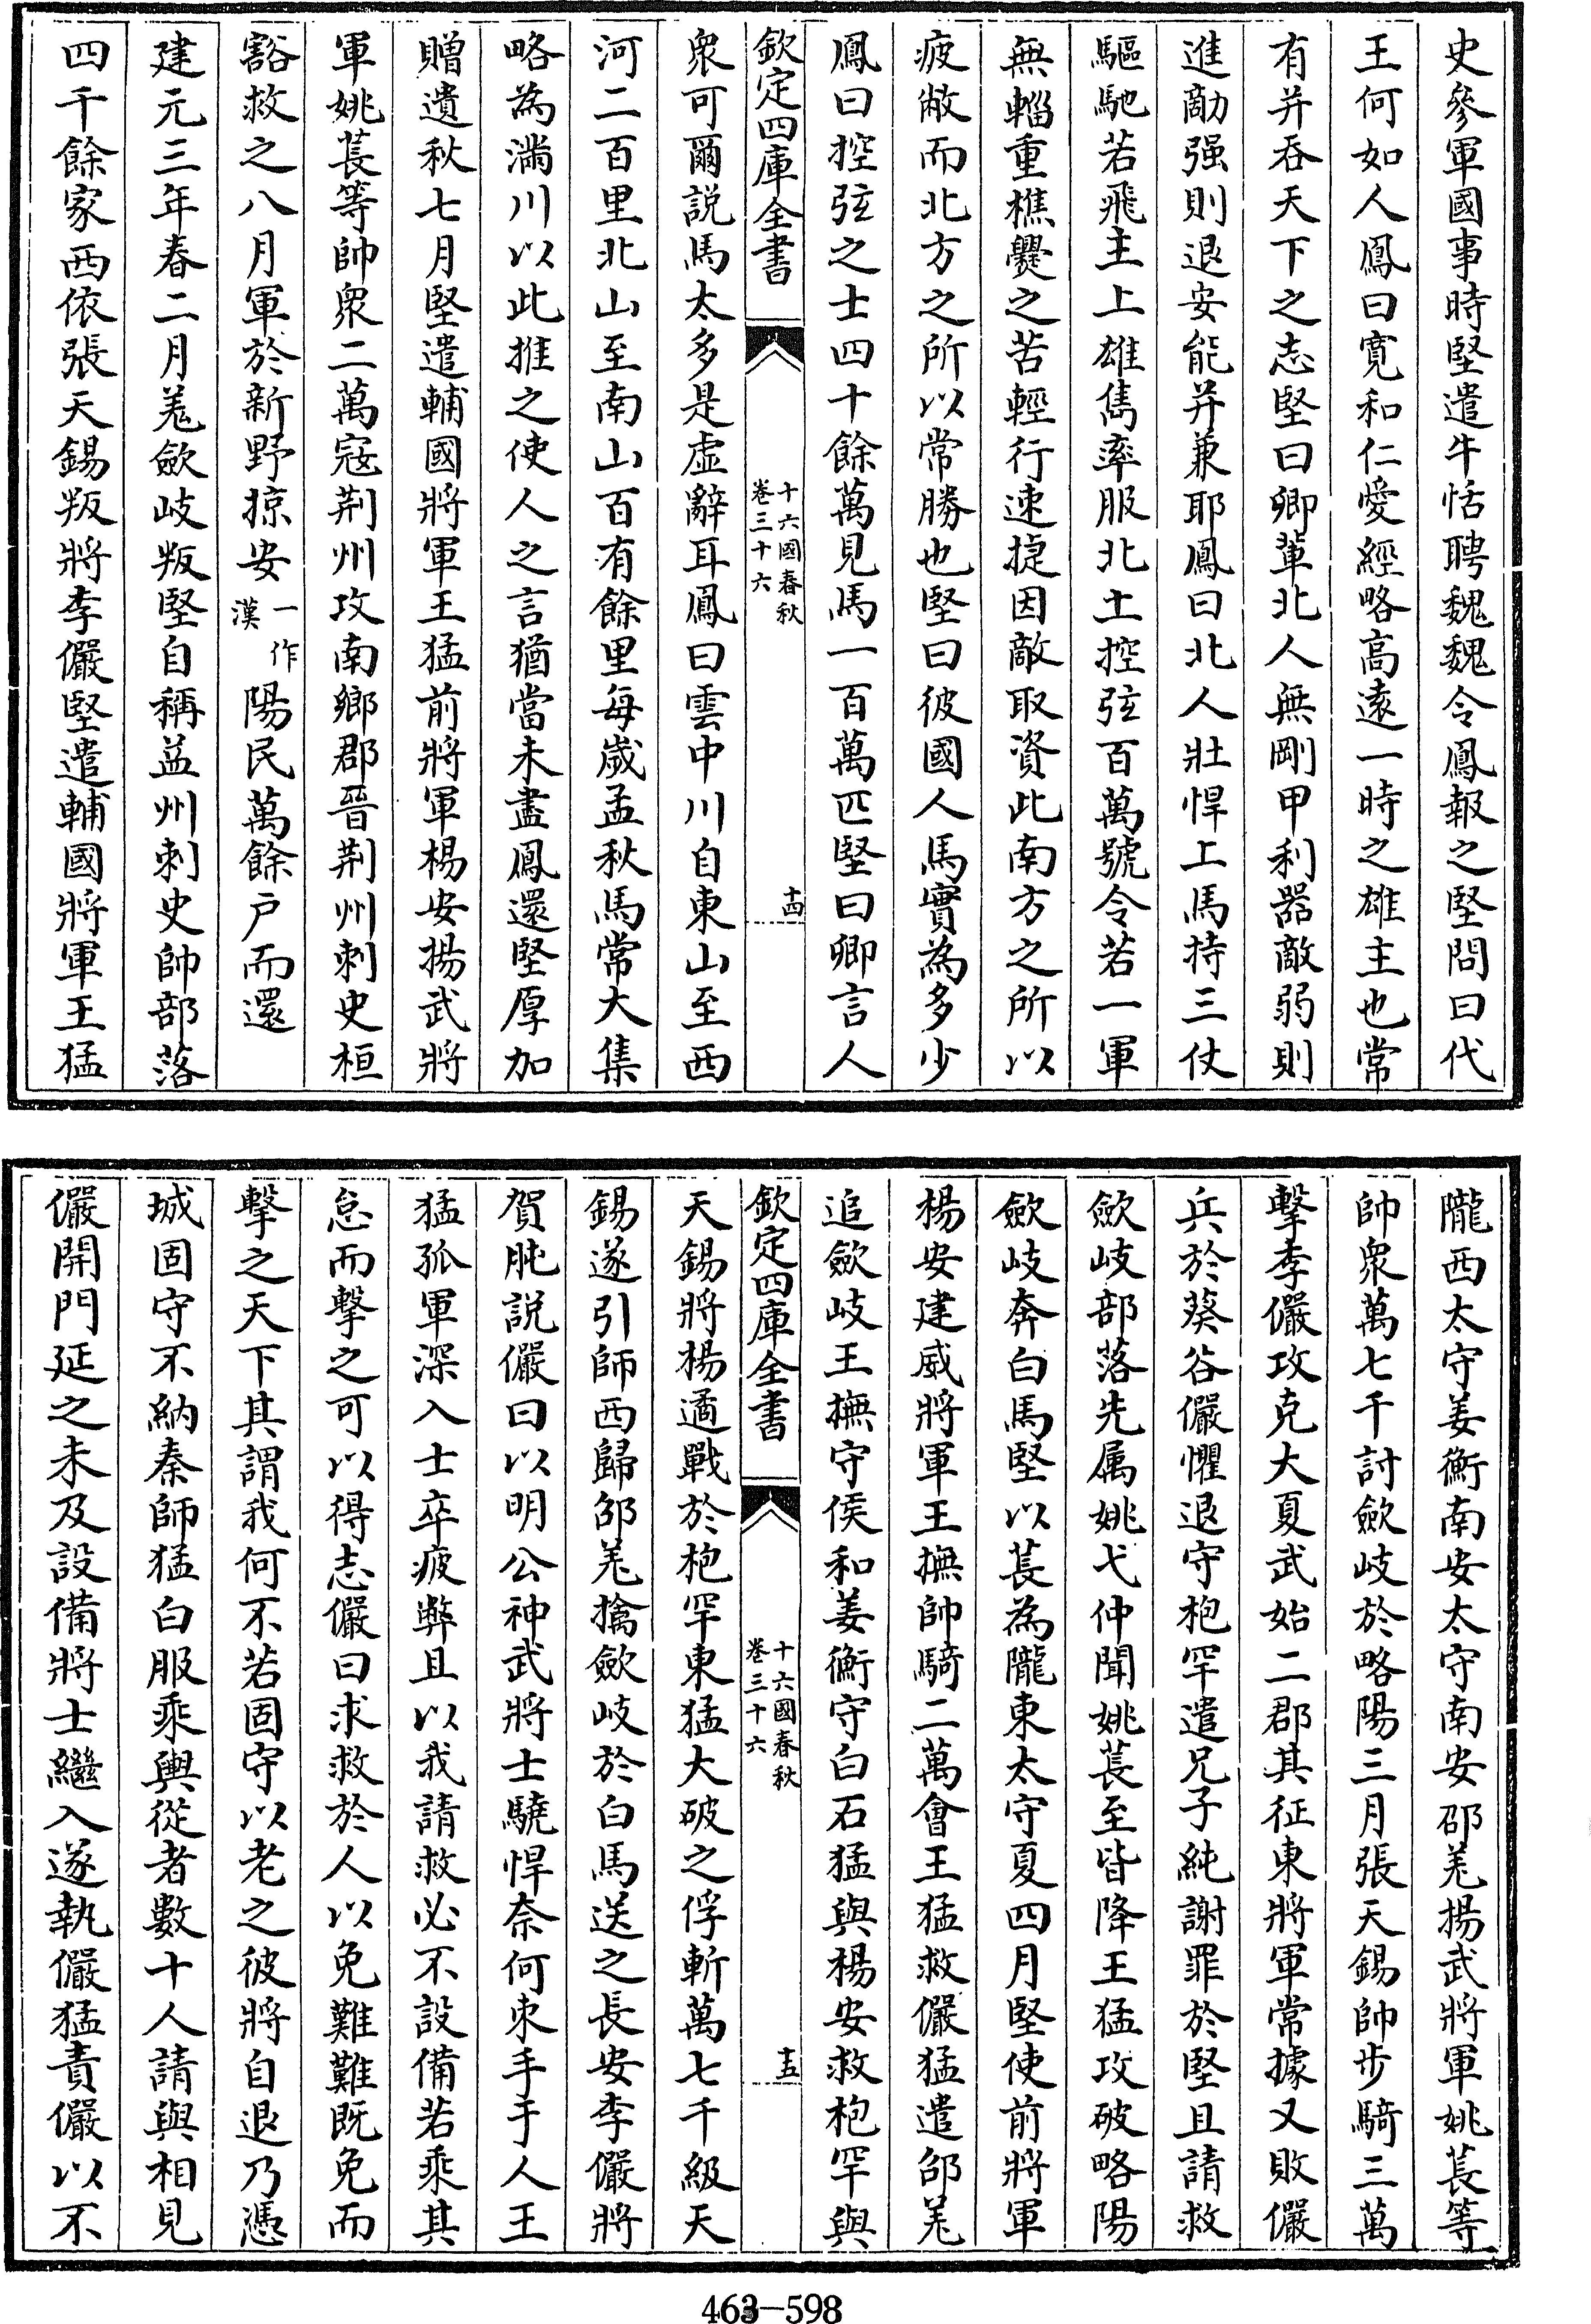 史參軍國事時堅遣牛恬聘魏魏令鳳報之堅問曰代
王何如人鳳曰寬和仁愛經略高遠一時之雄主也常
有并吞天下之志堅曰卿輩北人無剛甲利器敵弱則
進敵强則退安能并兼耶鳳曰北人壯悍上馬持三仗
驅馳若飛主上雄雋率服北土控弦百萬號令若一軍
無輜重樵爨之苦輕行速捷因敵取資此南方之所以
疲敝而北方之所以常勝也堅曰彼國人馬實為多少
鳳曰控弦之士四十餘萬見馬一百萬匹堅曰卿言人
欽定四庫全書
十六國春秋
卷三十六
十四
衆可爾説馬太多是虚辭耳鳳曰雲中川自東山至西
河二百里北山至南山百有餘里每歲孟秋馬常大集
略為滿川以此推之使人之言猶當未盡鳳還堅厚加
贈遺秋七月堅遣輔國將軍王猛前將軍楊安揚武將
軍姚萇等帥衆二萬寇荆州攻南鄉郡晉荆州刺史桓
豁救之八月軍於新野掠安一作漢陽民萬餘户而還
建元三年春二月羌歛岐叛堅自稱益州刺史帥部落
四千餘家西依張天錫叛將李儼堅遣輔國將軍王猛
隴西太守姜衡南安太守南安邵羌揚武將軍姚萇等
帥衆萬七千討歛岐於略陽三月張天錫帥步騎三萬
擊李儼攻克大夏武始二郡其征東將軍常據又敗儼
兵於葵谷儼懼退守枹罕遣兄子純謝罪於堅且請救
歛岐部落先属姚弋仲聞姚萇至皆降王猛攻破略陽
歛岐奔白馬堅以萇為隴東太守夏四月堅使前將軍
楊安建威將軍王撫帥騎二萬會王猛救儼猛遣邵羌
追歛岐王撫守侯和姜衡守白石猛與楊安救枹罕與
欽定四庫全書
十六國春秋
卷三十六
十五
天錫將楊遹戰於枹罕東猛大破之俘斬萬七千級天
錫遂引師西歸邵羌擒歛岐於白馬送之長安李儼將
賀肫説儼曰以明公神武將士驍悍奈何束手于人王
猛孤軍深入士卒疲弊且以我請救必不設備若乘其
怠而擊之可以得志儼曰求救於人以免難難既免而
擊之天下其謂我何不若固守以老之彼將自退乃憑
城固守不納秦師猛白服乘輿從者數十人請與相見
儼開門延之未及設備將士繼入遂執儼猛責儼以不
463-598